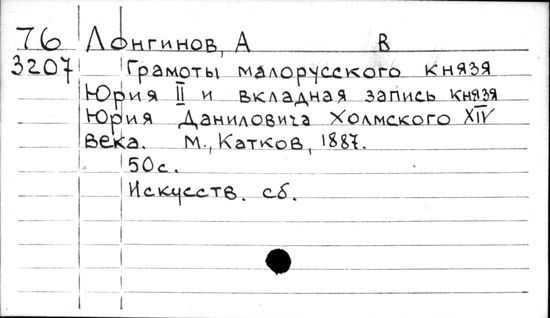 76 Лонгинов, А В
3207 Грамоты малорусского князя
Юрия II и вкладная запись князя
Юрия Даниловича Холмского XIV
века. М., Катков, 1887.
50с.
Искусств. сб.